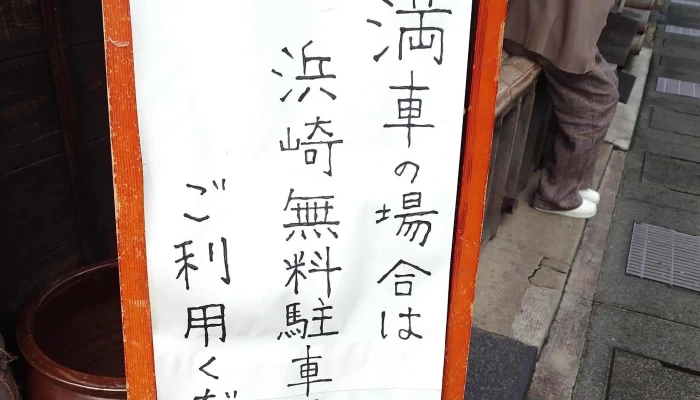 満車の場合は
浜崎無料駐車
ご利用くだ